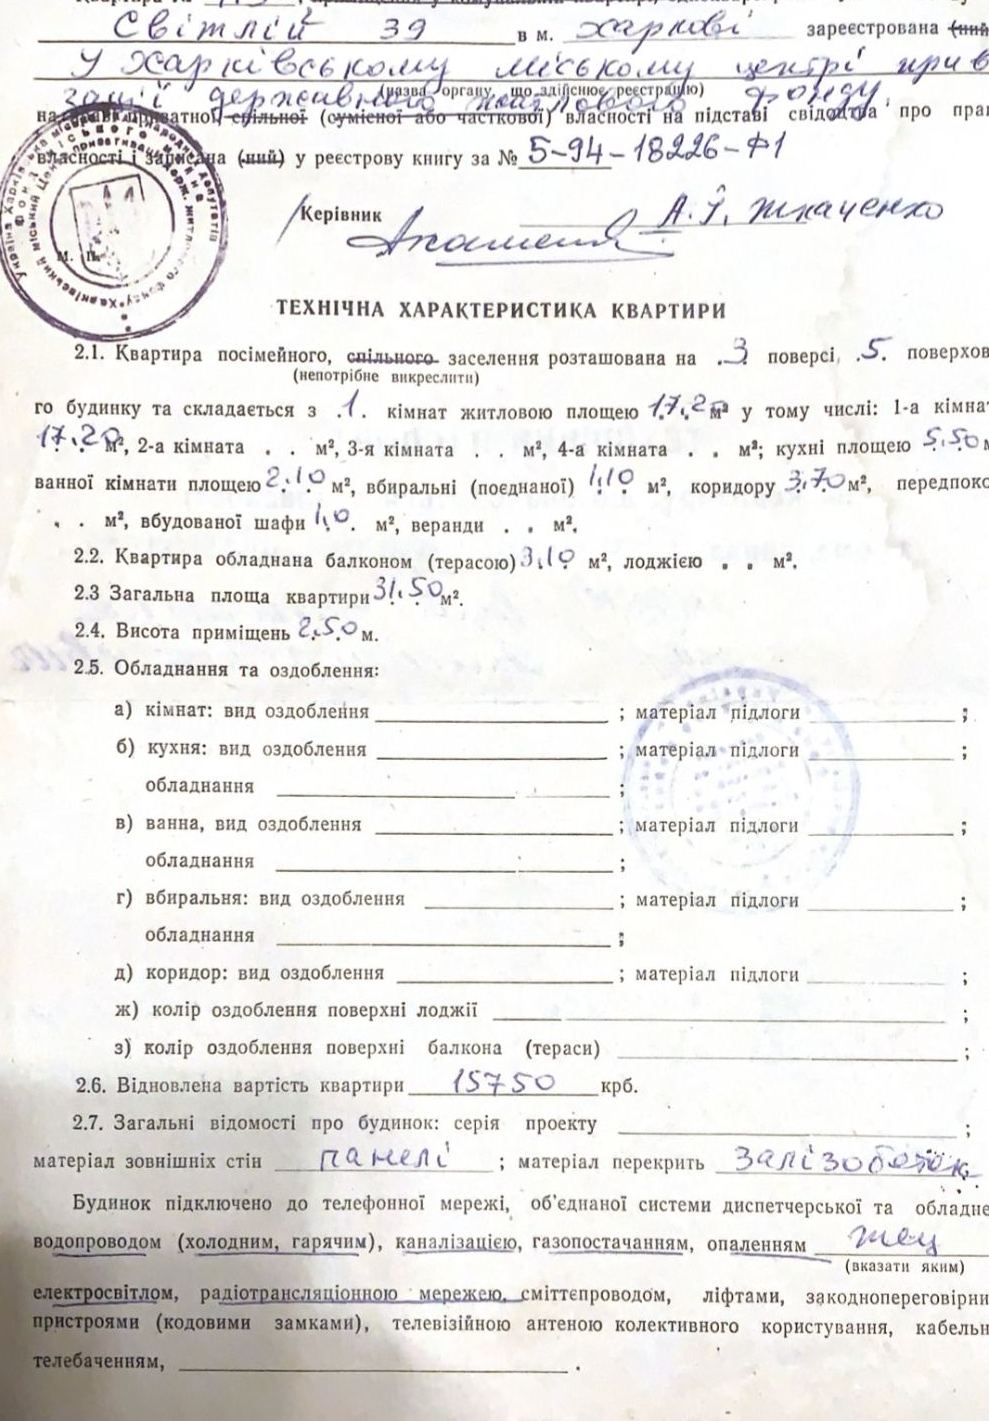 Світлій 39 в м. Харкові зареєстрована (ний)
у Харківському міському центрі прив
(назва органу, що здійснює реєстрацію)
зації державного житлового фонду
на праві приватної, спільної (сумісної або часткової) власності на підставі свідоцтва про прав
власності і записана (ний) у реєстрову книгу за № 5-94-18226-Ф1
Керівник А.І. Ткаченко
М. П.
ТЕХНІЧНА ХАРАКТЕРИСТИКА КВАРТИРИ
2.1. Квартира посімейного, спільного заселення розташована на 3 поверсі, 5 поверхов
(непотрібне викреслити)
го будинку та складається з 1 кімнат житловою площею 17.20 м² у тому числі: 1-а кімнат
17.20 м², 2-а кімната . . м², 3-я кімната . . м², 4-а кімната . . м²; кухні площею 5.50 м
ванної кімнати площею 2.10 м², вбиральні (поєднаної) 1.10 м², коридору 3.70 м², передпоко
. . м², вбудованої шафи 1,0. м², веранди . . м².
2.2. Квартира обладнана балконом (терасою) 3.10 м², лоджією . . м².
2.3 Загальна площа квартири 31.50 м².
2.4. Висота приміщень 2.50 м.
2.5. Обладнання та оздоблення:
а) кімнат: вид оздоблення ; матеріал підлоги ;
б) кухня: вид оздоблення ; матеріал підлоги ;
обладнання ;
в) ванна, вид оздоблення ; матеріал підлоги ;
обладнання ;
г) вбиральня: вид оздоблення ; матеріал підлоги ;
обладнання ;
д) коридор: вид оздоблення ; матеріал підлоги ;
ж) колір оздоблення поверхні лоджії ;
з) колір оздоблення поверхні балкона (тераси) ;
2.6. Відновлена вартість квартири 15750 крб.
2.7. Загальні відомості про будинок: серія проекту ;
матеріал зовнішніх стін панелі ; матеріал перекрить залізобетон
Будинок підключено до телефонної мережі, об'єднаної системи диспетчерської та обладне
водопроводом (холодним, гарячим), каналізацією, газопостачанням, опаленням тец
(вказати яким)
електросвітлом, радіотрансляціонною мережею, сміттєпроводом, ліфтами, закоднопереговірни
пристроями (кодовими замками), телевізійною антеною колективного користування, кабельн
телебаченням, .